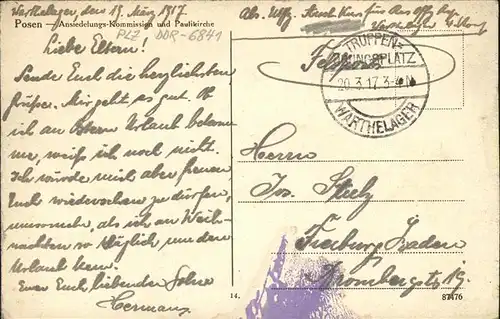 Warthelager, den 19. März 1917.
Posen — Ansiedelungs-Kommission und Paulikirche
PLZ DDR-6841
Liebe Eltern!
Sende Euch die herzlichsten
Grüße. Mir geht es gut. Ob
ich an Ostern Urlaub bekom
me, weiß ich noch nicht.
Ich würde mich aber freuen
Euch wiedersehen zu dürfen,
umsomehr, als ich an Weih-
nachten so kläglich um den
Urlaub kam.
Euer Euch liebender Sohn
Hermann
Abs. Uffz.
Warthelager
Feldpost
TRUPPEN-
ÜBUNGSPLATZ
20.3.17.3-4N
WARTHELAGER
Herrn
Jos. Stelz
Freiburg Baden
Krombergstr. 19.
14.
87476